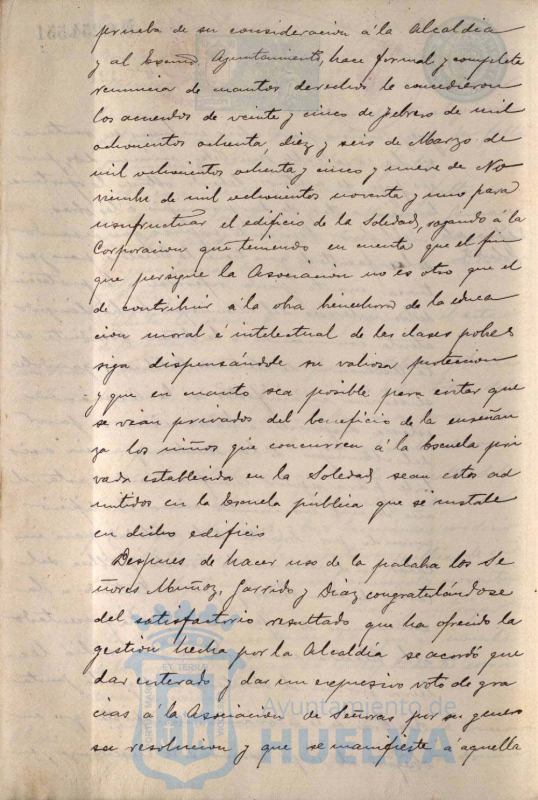 prueba de su consideracion á la Alcaldia
y al Excmo. Ayuntamiento, hace formal y completa
renuncia de cuantos derechos le concedieron
los acuerdos de veinte y cinco de febrero de mil
ochocientos ochenta, diez y seis de Marzo de
mil ochocientos ochenta y cinco y nueve de No
viembre de mil ochocientos noventa y uno para
usufructuar el edificio de la Soledad, rogando á la
Corporacion que teniendo en cuenta que el fin
que persigue la Asociacion no es otro que el
de contribuir á la obra bienhechora de la educa
cion moral é intelectual de las clases pobres
siga dispensándole su valiosa proteccion
y que en cuanto sea posible para evitar que
se vean privados del beneficio de la enseñan
za los niños que concurren á la Escuela pri
vada establecida en la Soledad, sean estos ad
mitidos en la Escuela pública que se instale
en dicho edificio
Despues de hacer uso de la palabra los Se
ñores Muñoz, Garrido y Diaz congratulándose
del satisfactorio resultado que ha ofrecido la
gestión hecha por la Alcaldía se acordó que
dar enterado y dar un expresivo voto de gra
cias á la Asociacion de Señoras por su genero
sa resolucion y que se manifieste á aquella
Ayuntamiento de
HUELVA